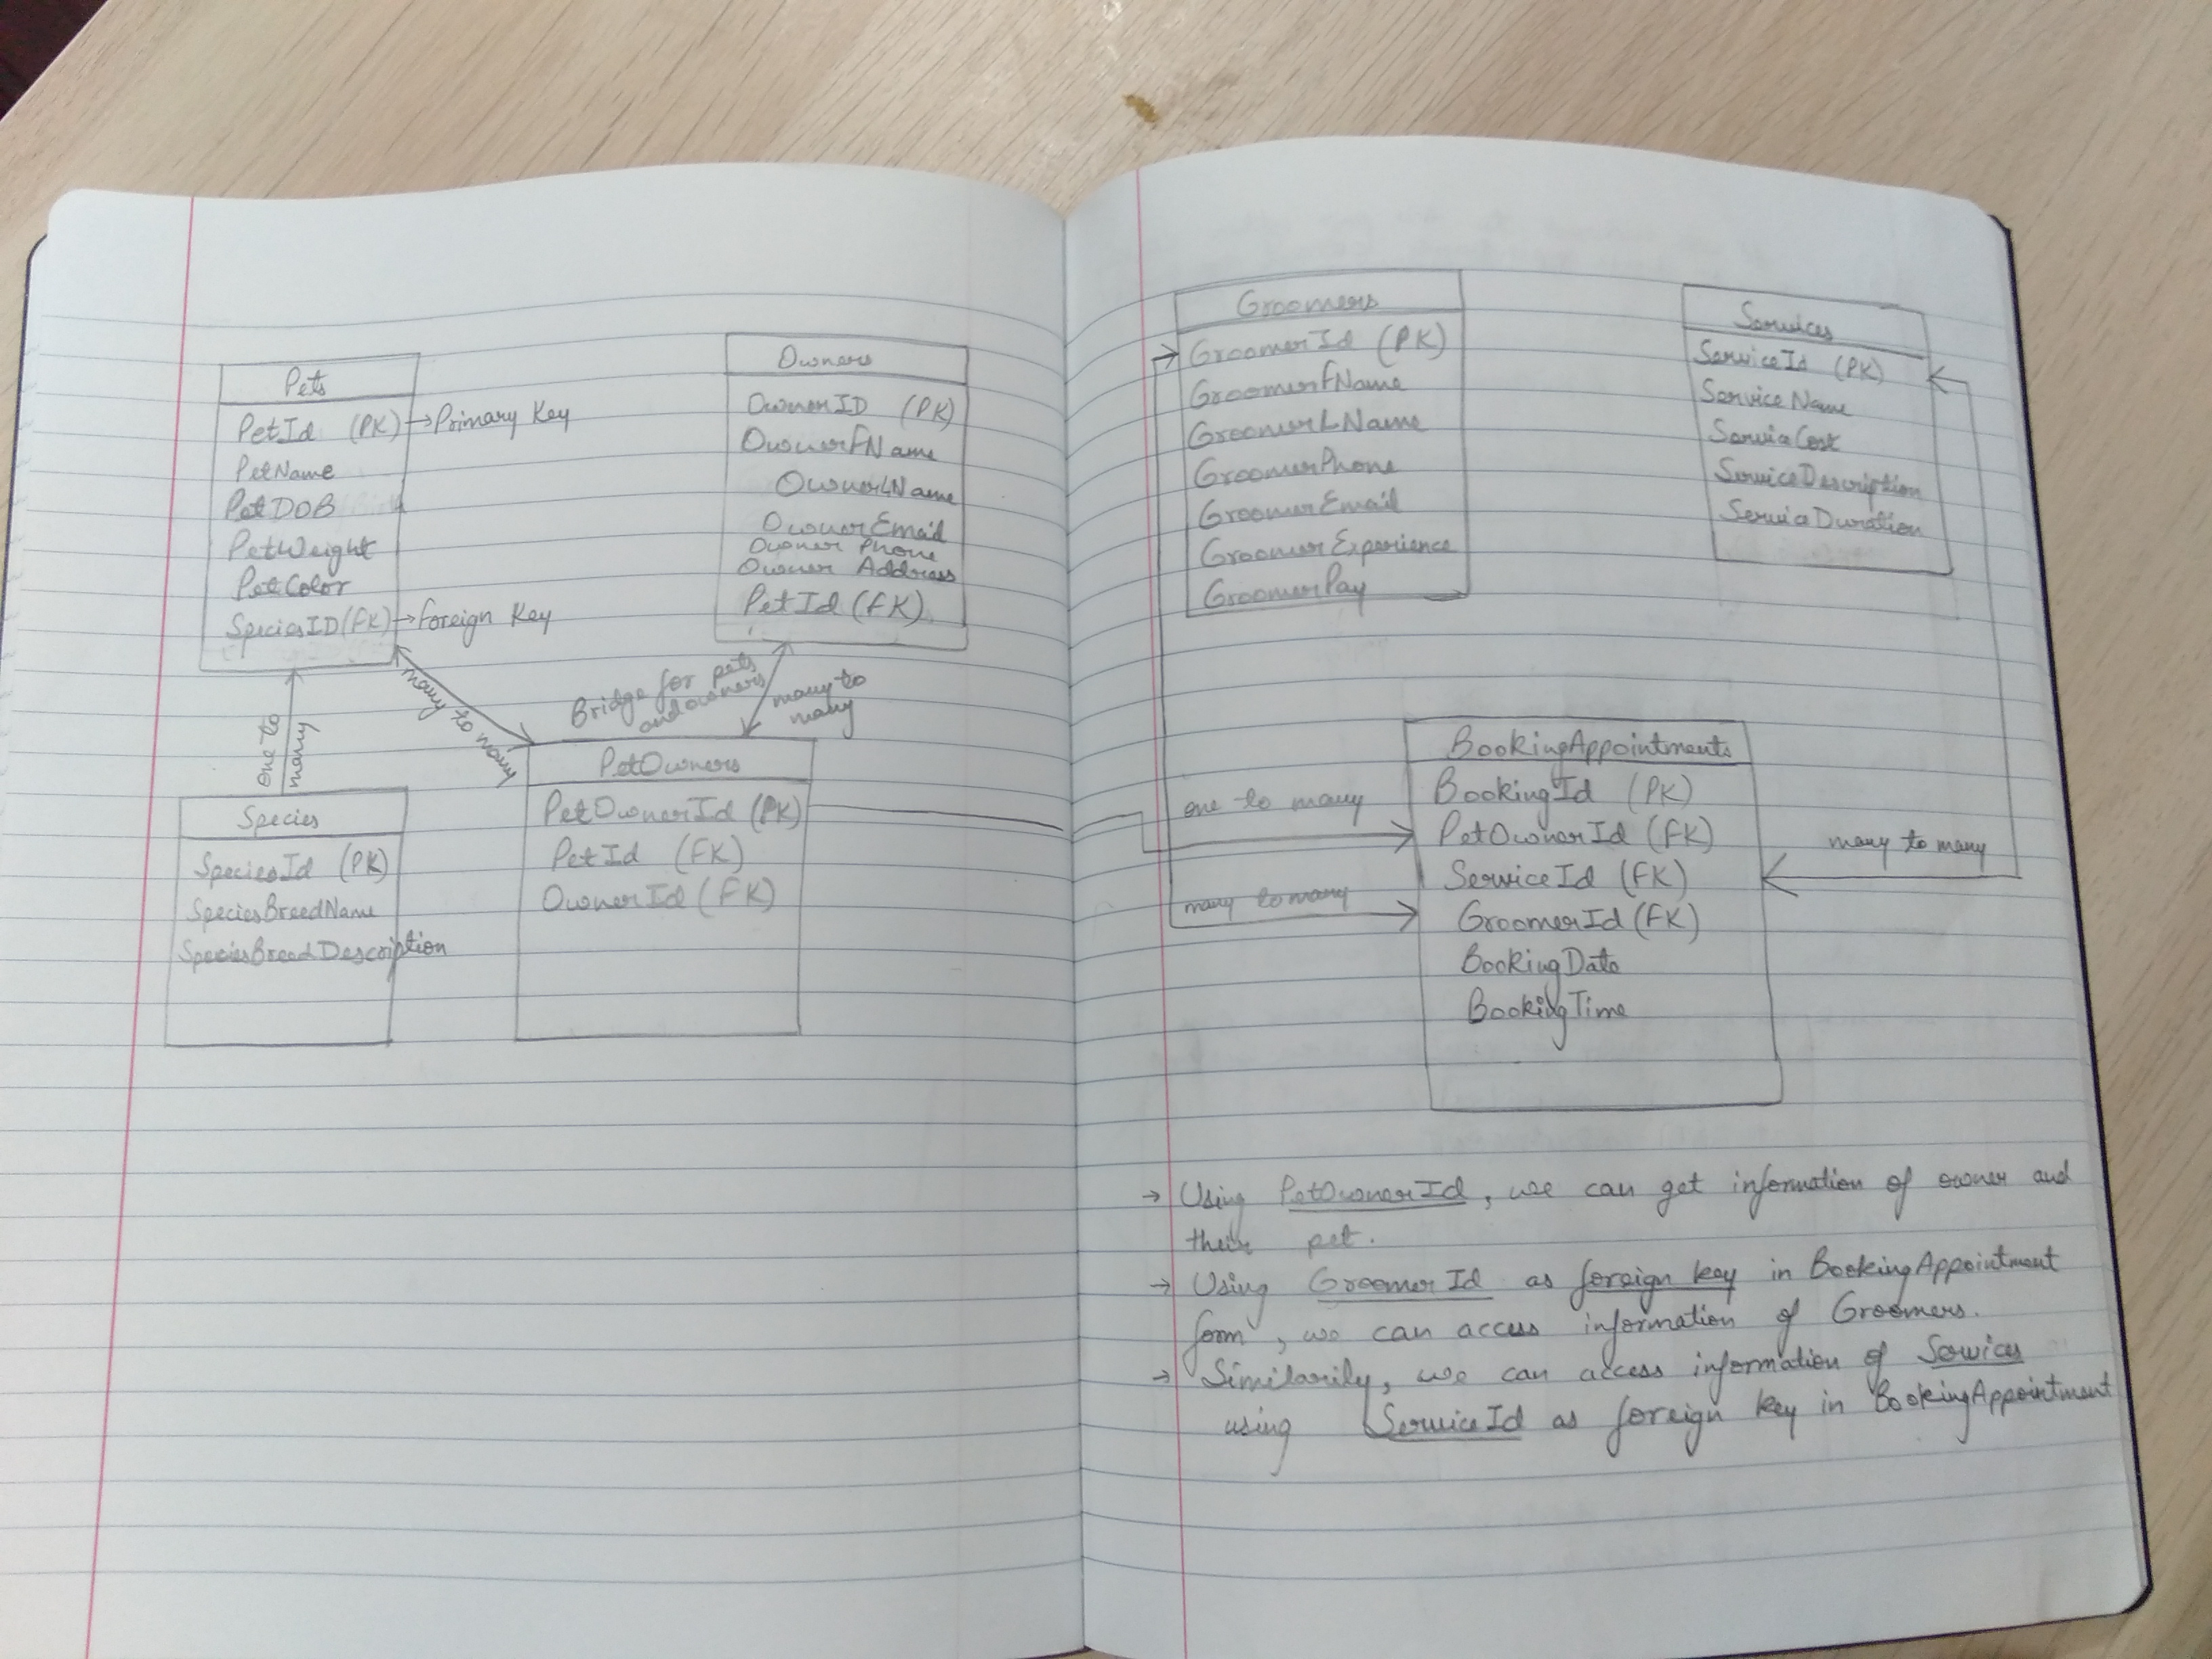 Pets
PetId (PK) → Primary Key
PetName
PetDOB
PetWeight
PetColor
SpeciesID (FK) → Foreign Key
Owners
OwnerID (PK)
OwnerFName
OwnerLName
OwnerEmail
Owner Phone
Owner Address
PetId (FK)
one to
many
many to many
Bridge for pets
and owners
many to
many
Species
SpeciesId (PK)
SpeciesBreedName
SpeciesBreedDescription
PetOwners
PetOwnerId (PK)
PetId (FK)
OwnerId (FK)
Groomers
GroomerId (PK)
GroomerFName
GroomerLName
GroomerPhone
GroomerEmail
GroomerExperience
GroomerPay
Services
ServiceId (PK)
ServiceName
ServiceCost
ServiceDescription
ServiceDuration
one to many
many to many
BookingAppointments
BookingId (PK)
PetOwnerId (FK)
ServiceId (FK)
GroomerId (FK)
BookingDate
BookingTime
many to many
→ Using PetOwnerId, we can get information of owner and
their pet.
→ Using GroomerId as foreign key in BookingAppointment
form, we can access information of Groomers.
→ Similarily, we can access information of Services
using ServiceId as foreign key in BookingAppointment